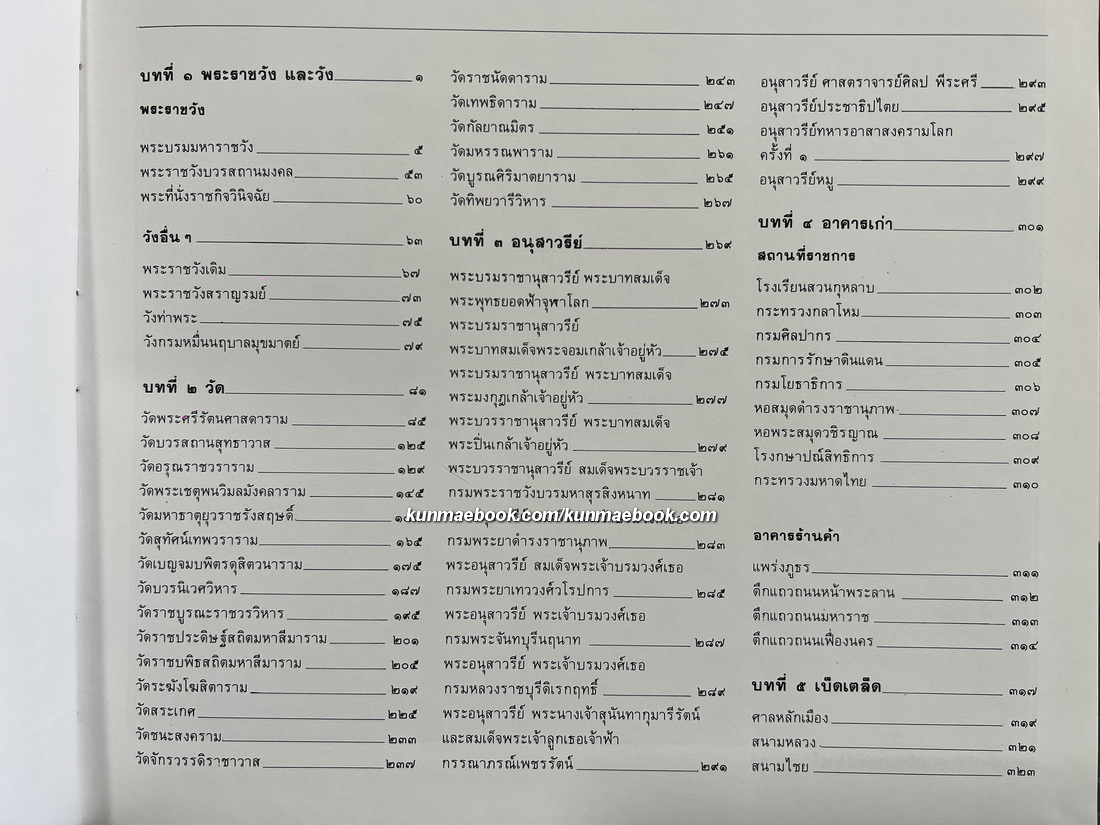 บทที่ ๑ พระราชวัง และวัง ๑
พระราชวัง
พระบรมมหาราชวัง ๕
พระราชวังบวรสถานมงคล ๕๓
พระที่นั่งราชกิจวินิจฉัย ๖๐
วังอื่น ๆ ๖๓
พระราชวังเดิม ๖๗
พระราชวังสราญรมย์ ๗๓
วังท่าพระ ๗๕
วังกรมหมื่นนฤบาลมุขมาตย์ ๗๙
บทที่ ๒ วัด ๘๑
วัดพระศรีรัตนศาสดาราม ๘๕
วัดบวรสถานสุทธาวาส ๑๒๕
วัดอรุณราชวราราม ๑๒๙
วัดพระเชตุพนวิมลมังคลาราม ๑๔๕
วัดมหาธาตุยุวราชรังสฤษดิ์
วัดสุทัศน์เทพวราราม ๑๖๕
วัดเบญจมบพิตรดุสิตวนาราม ๑๗๕
วัดบวรนิเวศวิหาร ๑๘๗
วัดราชบูรณะราชวรวิหาร ๑๙๕
วัดราชประดิษฐ์สถิตมหาสีมาราม ๒๐๑
วัดราชบพิธสถิตมหาสีมาราม ๒๐๕
วัดระฆังโฆสิตาราม ๒๑๙
วัดสระเกศ ๒๒๕
วัดชนะสงคราม ๒๓๓
วัดจักรวรรดิราชาวาส ๒๓๗
วัดราชนัดดาราม ๒๔๓
วัดเทพธิดาราม ๒๔๗
วัดกัลยาณมิตร ๒๕๑
วัดมหรรณพาราม ๒๖๑
วัดบูรณศิริมาตยาราม ๒๖๕
วัดทิพยวารีวิหาร ๒๖๗
บทที่ ๓ อนุสาวรีย์ ๒๖๙
พระบรมราชานุสาวรีย์ พระบาทสมเด็จ
พระพุทธยอดฟ้าจุฬาโลก ๒๗๓
พระบรมราชานุสาวรีย์
พระบาทสมเด็จพระจอมเกล้าเจ้าอยู่หัว ๒๗๕
พระบรมราชานุสาวรีย์ พระบาทสมเด็จ
พระมงกุฎเกล้าเจ้าอยู่หัว ๒๗๗
พระบวรราชานุสาวรีย์ พระบาทสมเด็จ
พระปิ่นเกล้าเจ้าอยู่หัว ๒๗๙
พระบวรราชานุสาวรีย์ สมเด็จพระบวรราชเจ้า
กรมพระราชวังบวรมหาสุรสิงหนาท ๒๘๑
kunmaebook.com/kunmaebook.com
กรมพระยาดำรงราชานุภาพ ๒๘๓
พระอนุสาวรีย์ สมเด็จพระเจ้าบรมวงศ์เธอ
กรมพระยาเทววงศ์วโรปการ ๒๘๕
พระอนุสาวรีย์ พระเจ้าบรมวงศ์เธอ
กรมพระจันทบุรีนฤนาท ๒๘๗
พระอนุสาวรีย์ พระเจ้าบรมวงศ์เธอ
กรมหลวงราชบุรีดิเรกฤทธิ์ ๒๘๙
พระอนุสาวรีย์ พระนางเจ้าสุนันทากุมารีรัตน์
และสมเด็จพระเจ้าลูกเธอเจ้าฟ้า
กรรณาภรณ์เพชรรัตน์ ๒๙๑
อนุสาวรีย์ ศาสตราจารย์ศิลป พีระศรี ๒๙๓
อนุสาวรีย์ประชาธิปไตย ๒๙๕
อนุสาวรีย์ทหารอาสาสงครามโลก
ครั้งที่ ๑ ๒๙๗
อนุสาวรีย์หมู ๒๙๙
บทที่ ๔ อาคารเก่า ๓๐๑
สถานที่ราชการ
โรงเรียนสวนกุหลาบ ๓๐๒
กระทรวงกลาโหม ๓๐๓
กรมศิลปากร ๓๐๔
กรมการรักษาดินแดน ๓๐๕
กรมโยธาธิการ ๓๐๖
หอสมุดดำรงราชานุภาพ ๓๐๗
หอพระสมุดวชิรญาณ ๓๐๘
โรงกษาปณ์สิทธิการ ๓๐๙
กระทรวงมหาดไทย ๓๑๐
อาคารร้านค้า
แพร่งภูธร ๓๑๑
ตึกแถวถนนหน้าพระลาน ๓๑๒
ตึกแถวถนนมหาราช ๓๑๓
ตึกแถวถนนเฟื่องนคร ๓๑๔
บทที่ ๕ เบ็ดเตล็ด ๓๑๗
ศาลหลักเมือง ๓๑๙
สนามหลวง ๓๒๑
สนามไชย ๓๒๓